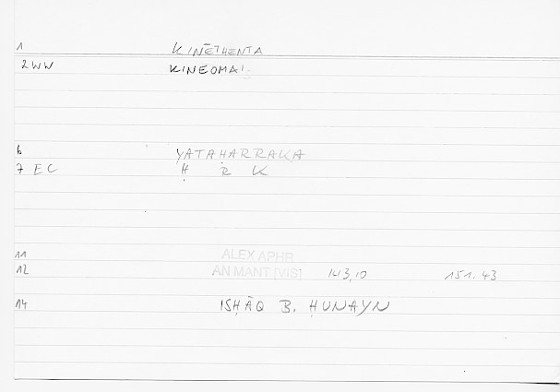 1 KINĒTHENTA
2 WW KINEOMAI
6 YATAḤARRAKA
7 EC Ḥ R K
11 ALEX APHR
12 AN MANT [VIS] 143,10 151.43
14 ISḤĀQ B. ḤUNAYN